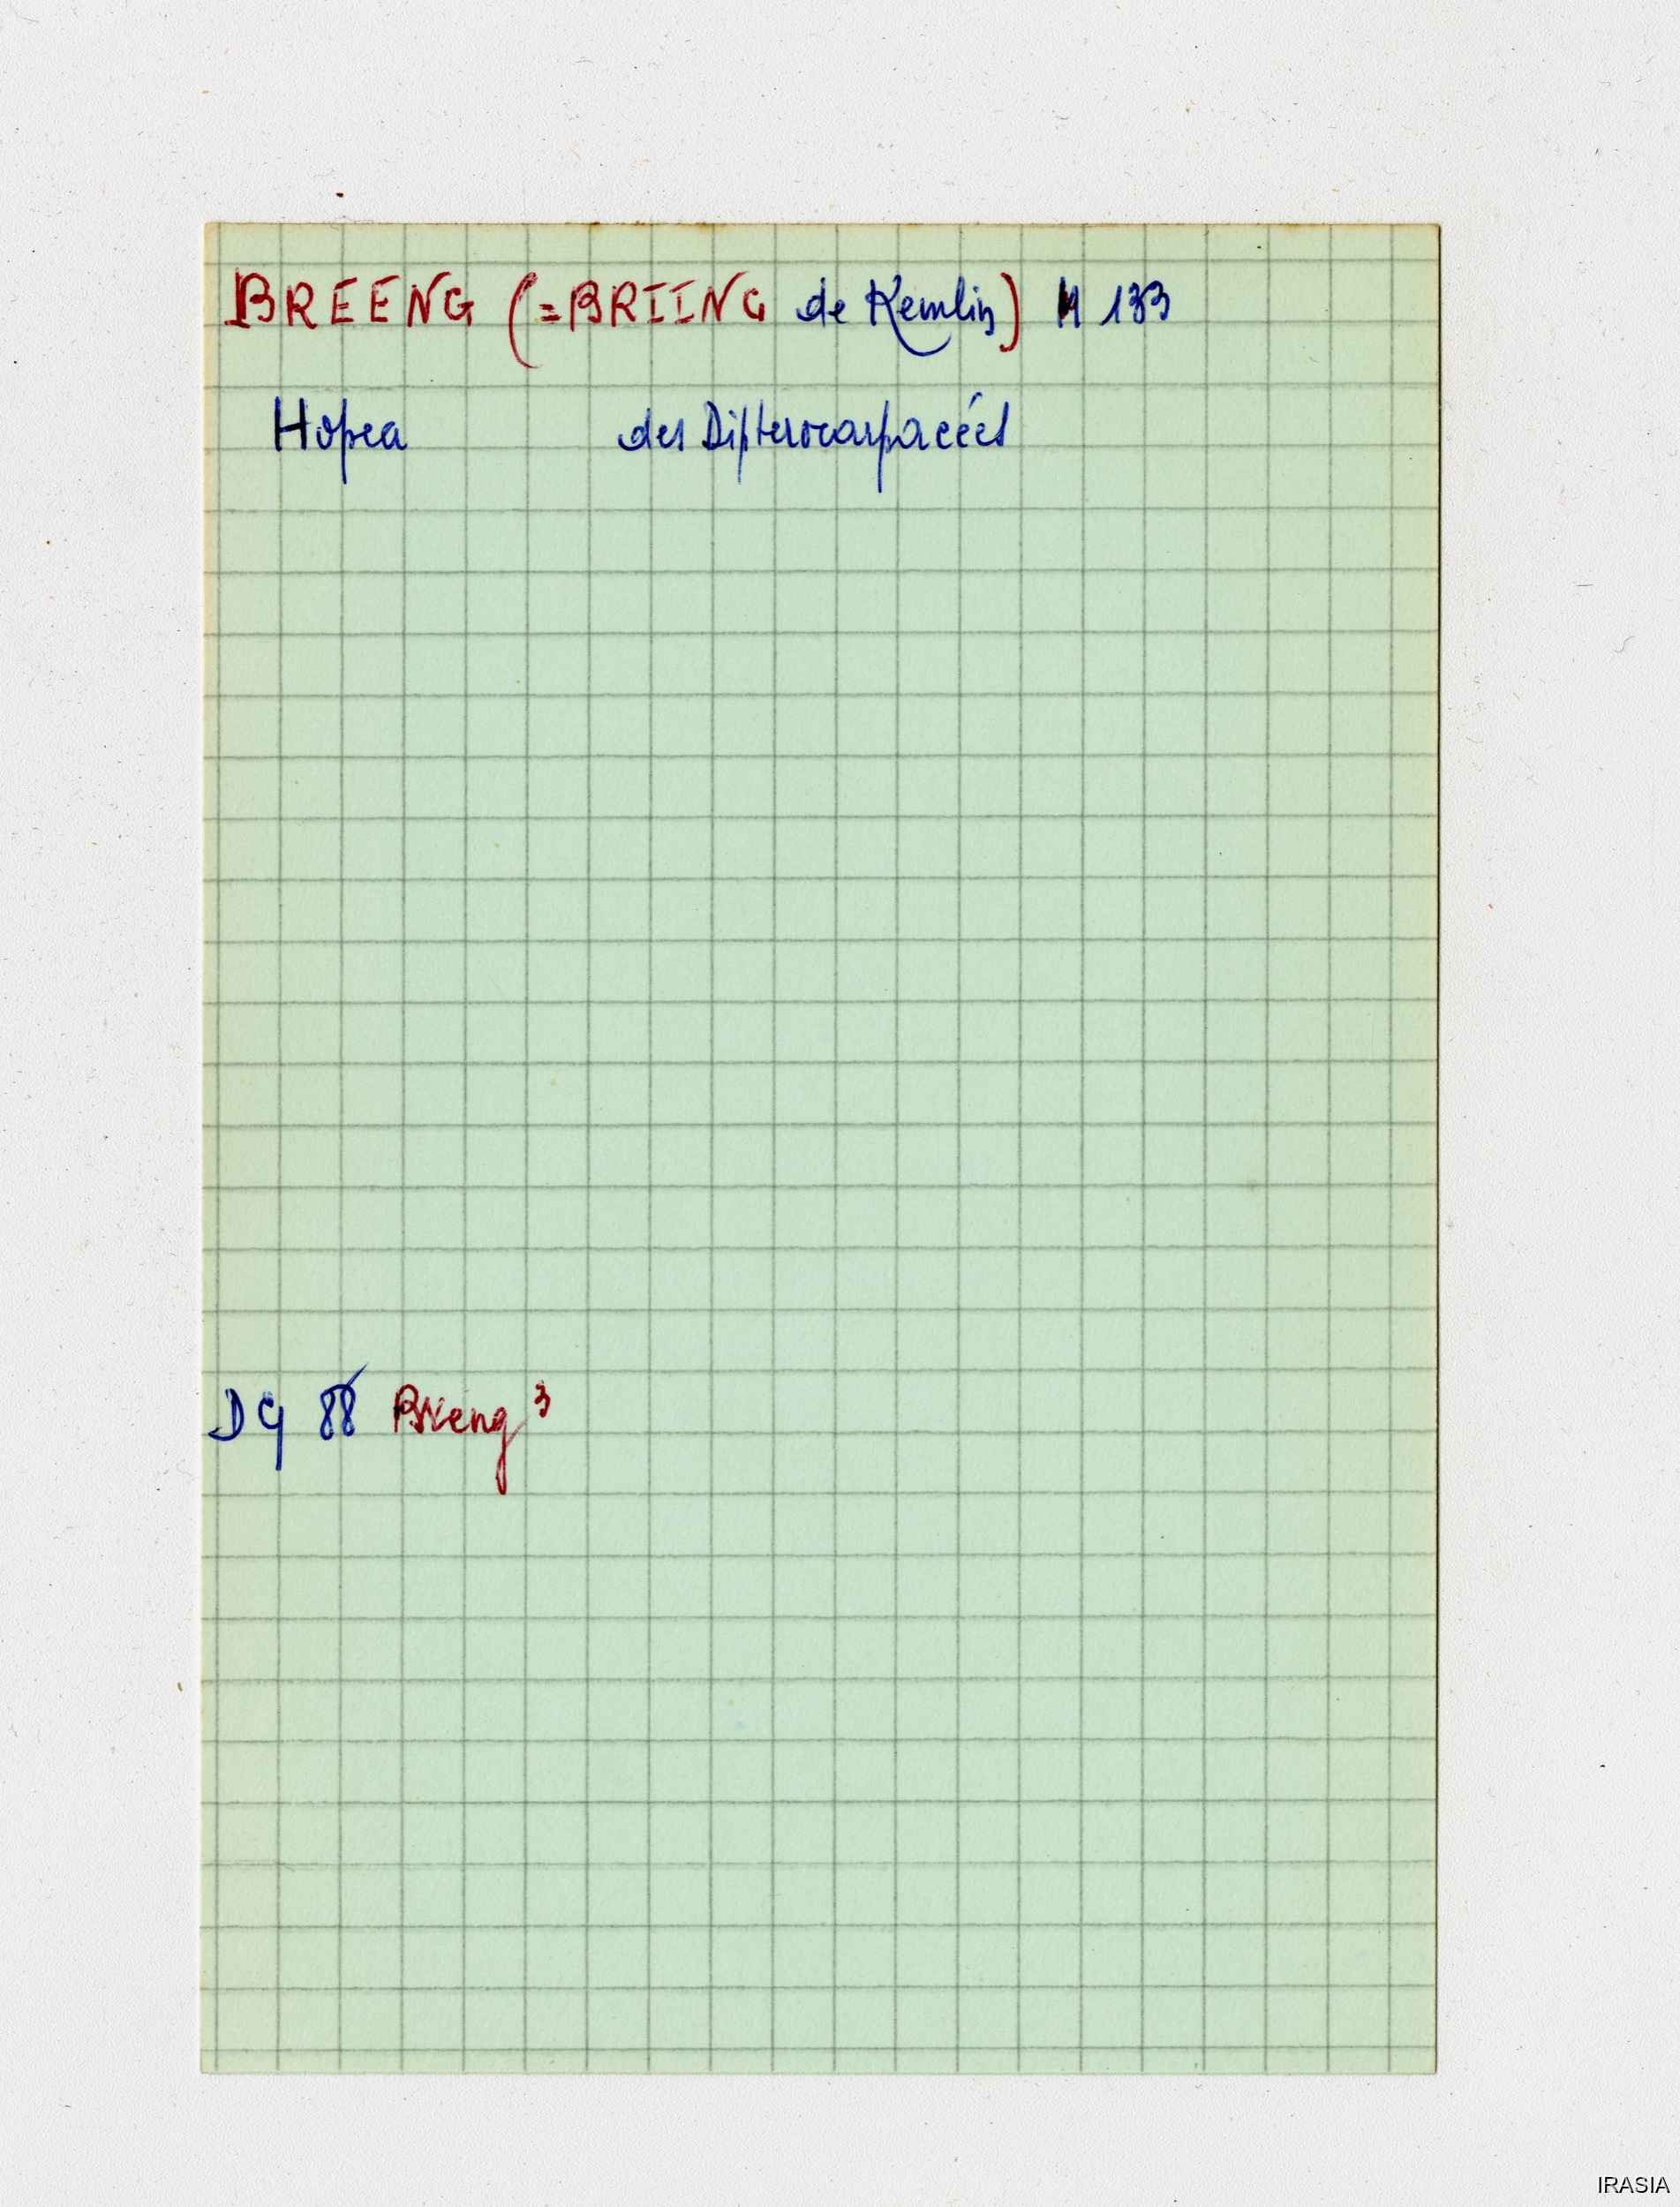 BREENG (=BRIING de Kemlin) M 133
Hopea des Dipterocarpacées
DG 88 Breng 3
IRASIA